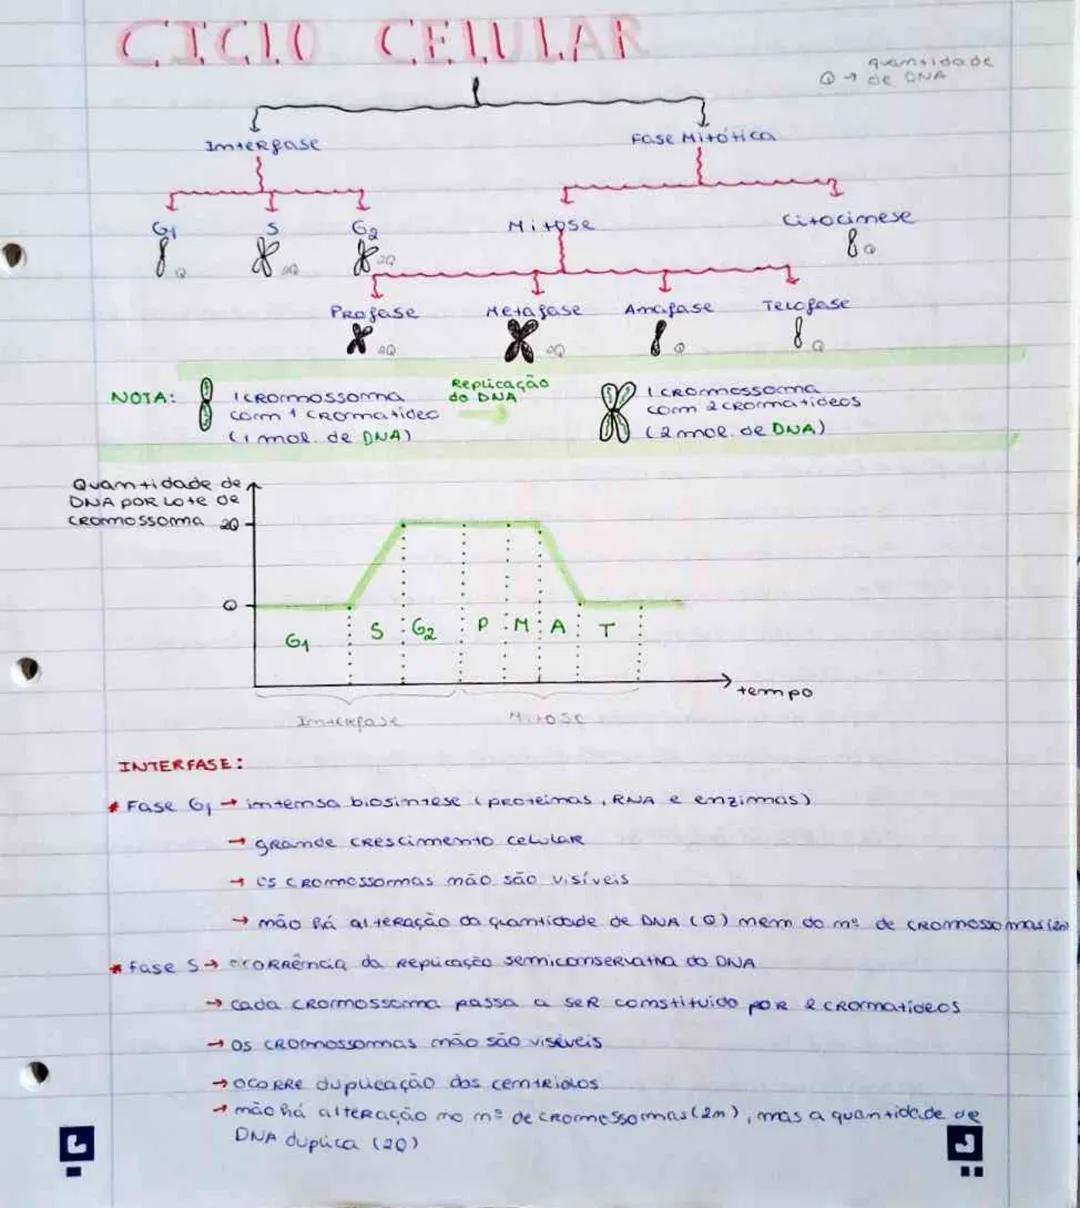 CICLO CELULAR
Q → quantidade
de DNA
Interfase
Fase Mitótica
G1 S G2
Mitose
Citocinese
Q 2Q 2Q
Q
Profase Metafase Anafase Telofase
2Q 2Q Q Q
NOTA: 1 cromossoma
com 1 cromatídeo
(1 mol. de DNA)
Replicação
do DNA
1 cromossoma
com 2 cromatídeos
(2 mol. de DNA)
Quantidade de
DNA por lote de
cromossoma 2Q
Q
G1 S G2 P M A T
tempo
Interfase Mitose
INTERFASE:
* Fase G1 → intensa biosintese (proteinas, RNA e enzimas)
→ grande crescimento celular
→ os cromossomas não são visíveis
→ não há alteração da quantidade de DNA (Q) nem do nº de cromossomas (2n)
* Fase S → ocorrência da replicação semiconservativa do DNA
→ cada cromossoma passa a ser constituido por 2 cromatídeos
→ os cromossomas não são visíveis
→ ocorre duplicação dos centriolos
→ não há alteração no nº de cromossomas (2n), mas a quantidade de
DNA duplica (2Q)